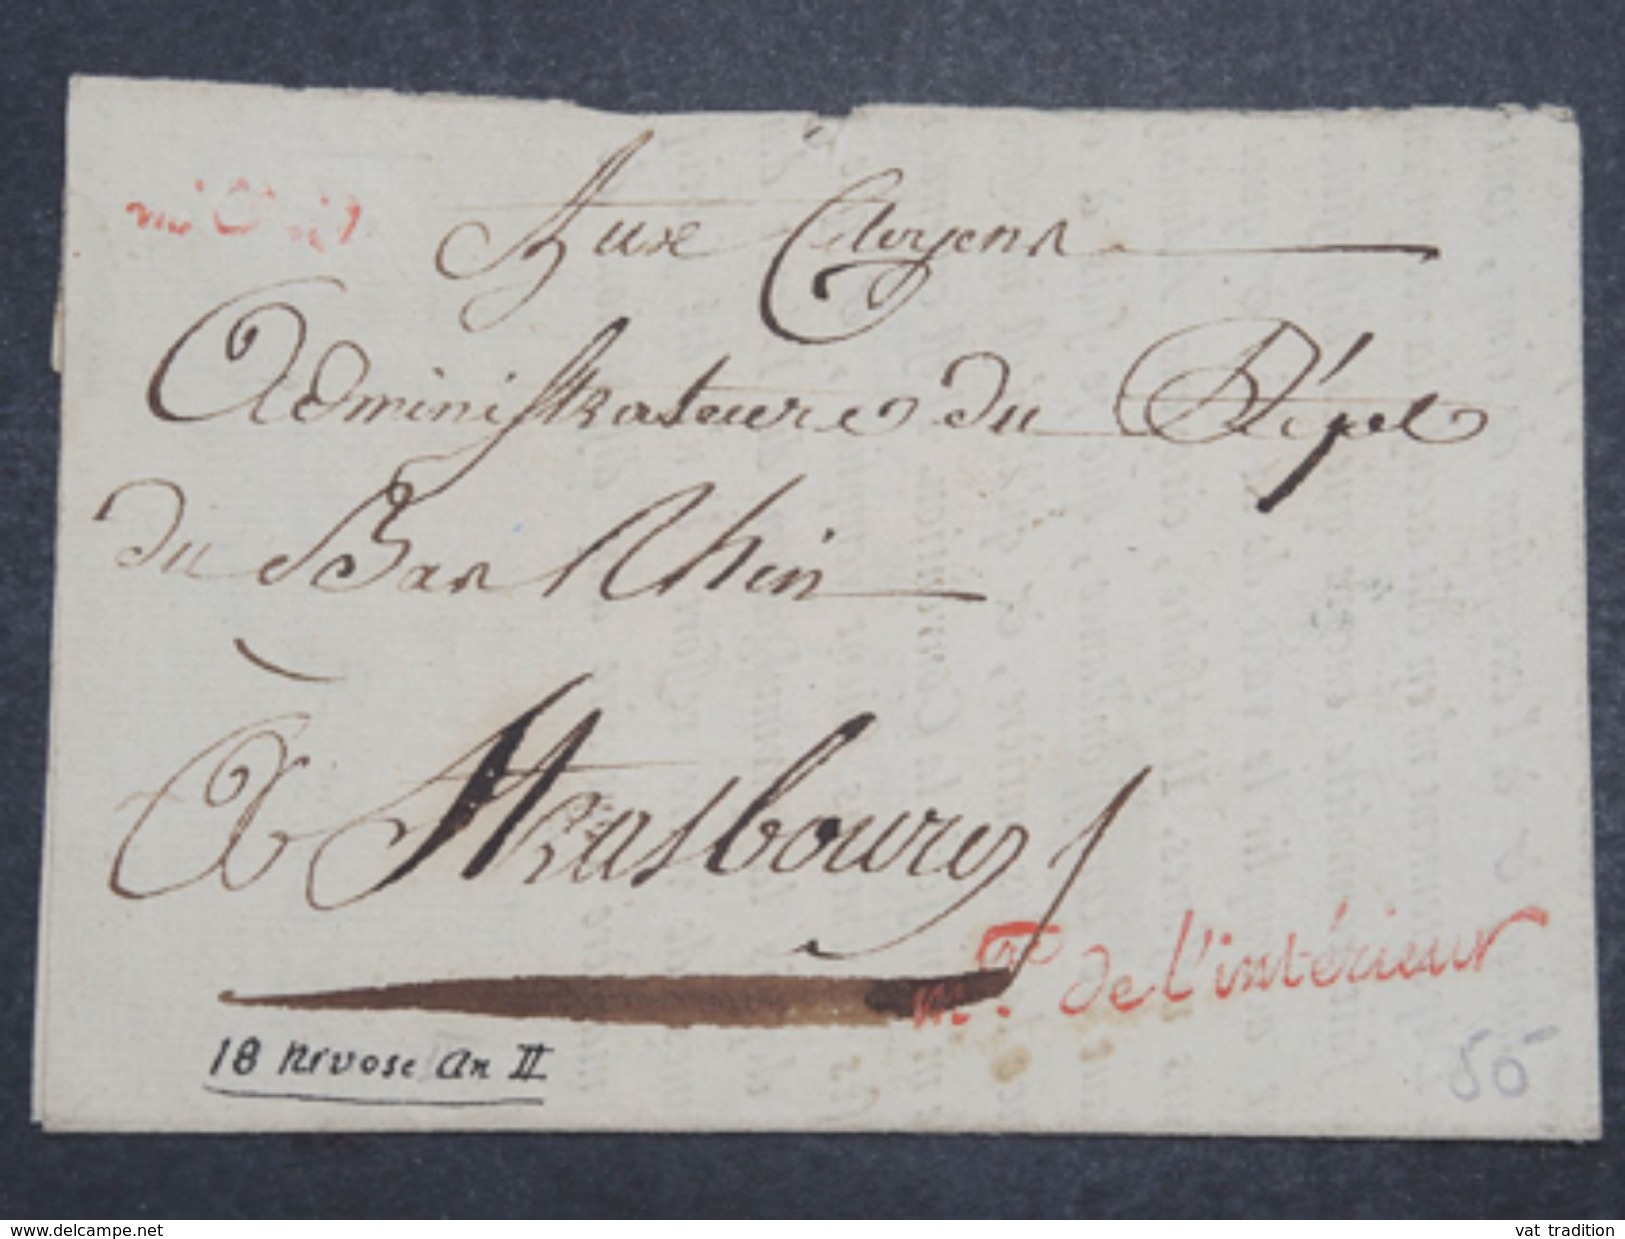 Aux Citoyens
Administrateurs du Dép.t
du Bas Rhin
à Strasbourg
m.re de l'intérieur
18 Nivose An II
50
© delcampe.net
vat tradition